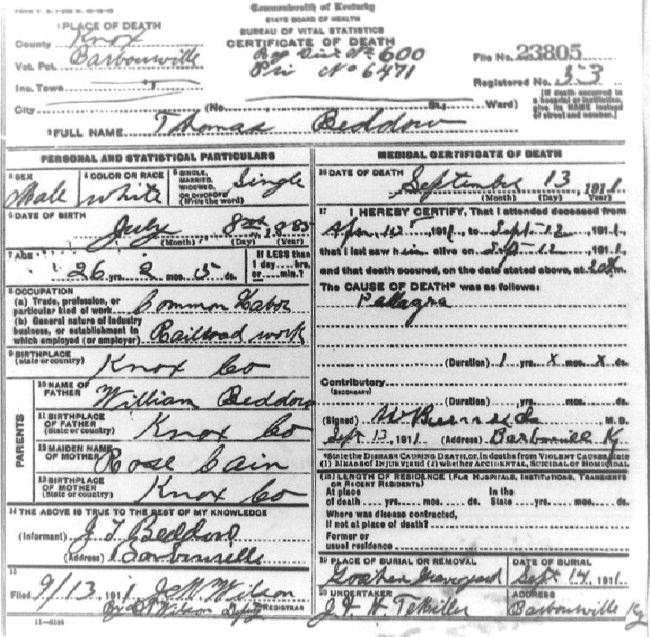 Commonwealth of Kentucky
STATE BOARD OF HEALTH
BUREAU OF VITAL STATISTICS
CERTIFICATE OF DEATH
1 PLACE OF DEATH
County Knox
Vot. Pct. Barbourville
Inc. Town
City (No. St., Ward)
Reg Dist No 600
Pri No 6471
File No. 23805
Registered No. 33
(If death occurred in a hospital or institution, give its NAME instead of street and number.)
2 FULL NAME Thomas Beddow
PERSONAL AND STATISTICAL PARTICULARS
3 SEX Male
4 COLOR OR RACE White
5 SINGLE, MARRIED, WIDOWED, OR DIVORCED (Write the word) Single
6 DATE OF BIRTH July 8th, 1885
(Month) (Day) (Year)
7 AGE 26 yrs. 2 mos. 5 ds.
If LESS than 1 day.... hrs. or.... min.?
8 OCCUPATION
(a) Trade, profession, or particular kind of work Common Labor
(b) General nature of industry business, or establishment in which employed (or employer) Railroad work
9 BIRTHPLACE (State or country) Knox Co
PARENTS
10 NAME OF FATHER William Beddow
11 BIRTHPLACE OF FATHER (State or country) Knox Co
12 MAIDEN NAME OF MOTHER Rose Cain
13 BIRTHPLACE OF MOTHER (State or country) Knox Co
14 THE ABOVE IS TRUE TO THE BEST OF MY KNOWLEDGE
(Informant) J T Beddow
(Address) Barbourville
15
Filed 9/13, 1911 Wilson
Wilson Deputy REGISTRAR
MEDICAL CERTIFICATE OF DEATH
16 DATE OF DEATH September 13, 1911
(Month) (Day) (Year)
17 I HEREBY CERTIFY, That I attended deceased from
1911, to Sept 12, 1911,
that I last saw him alive on Sept 12, 1911,
and that death occured, on the date stated above, at m.
The CAUSE OF DEATH* was as follows:
Pallagra
(Duration) 1 yrs. X mos. X ds.
Contributory
(SECONDARY)
(Duration) yrs. mos. ds.
(Signed) M. D.
Sept 13, 1911 (Address) Barbourville Ky
*State the DISEASE CAUSING DEATH, or, in deaths from VIOLENT CAUSES, state (1) MEANS OF INJURY; and (2) whether ACCIDENTAL, SUICIDAL or HOMICIDAL
18 LENGTH OF RESIDENCE (FOR HOSPITALS, INSTITUTIONS, TRANSIENTS OR RECENT RESIDENTS)
At place of death yrs. mos. ds. In the State yrs. mos. ds.
Where was disease contracted, if not at place of death?
Former or usual residence
19 PLACE OF BURIAL OR REMOVAL Goshen Graveyard
DATE OF BURIAL Sept 14, 1911
20 UNDERTAKER
ADDRESS Barbourville Ky